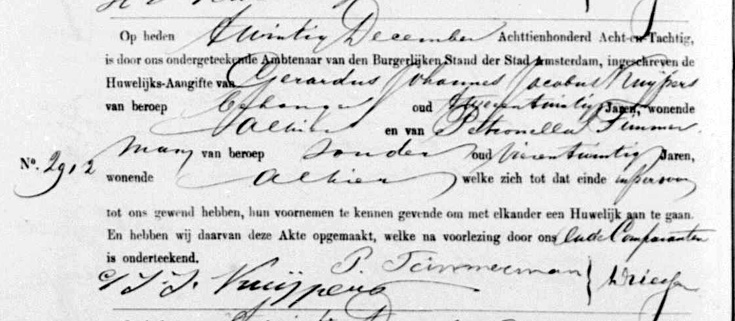 Op heden Twintig December Achttienhonderd Acht-en-Tachtig,
is door ons ondergeteekende Ambtenaar van den Burgerlijken Stand der Stad Amsterdam, ingeschreven de
Huwelijks-Aangifte van Gerardus Johannes Jacobus Kuijpers
van beroep behanger oud Jaren, wonende
Alhier en van Petronella Timmer
man van beroep zonder oud vierentwintig Jaren,
No. 2912
wonende Alhier welke zich tot dat einde in persoon
tot ons gewend hebben, hun voornemen te kennen gevende om met elkander een Huwelijk aan te gaan.
En hebben wij daarvan deze Akte opgemaakt, welke na voorlezing door ons en de Comparanten
is onderteekend.
P. Timmerman
G. J. J. Kuijpers